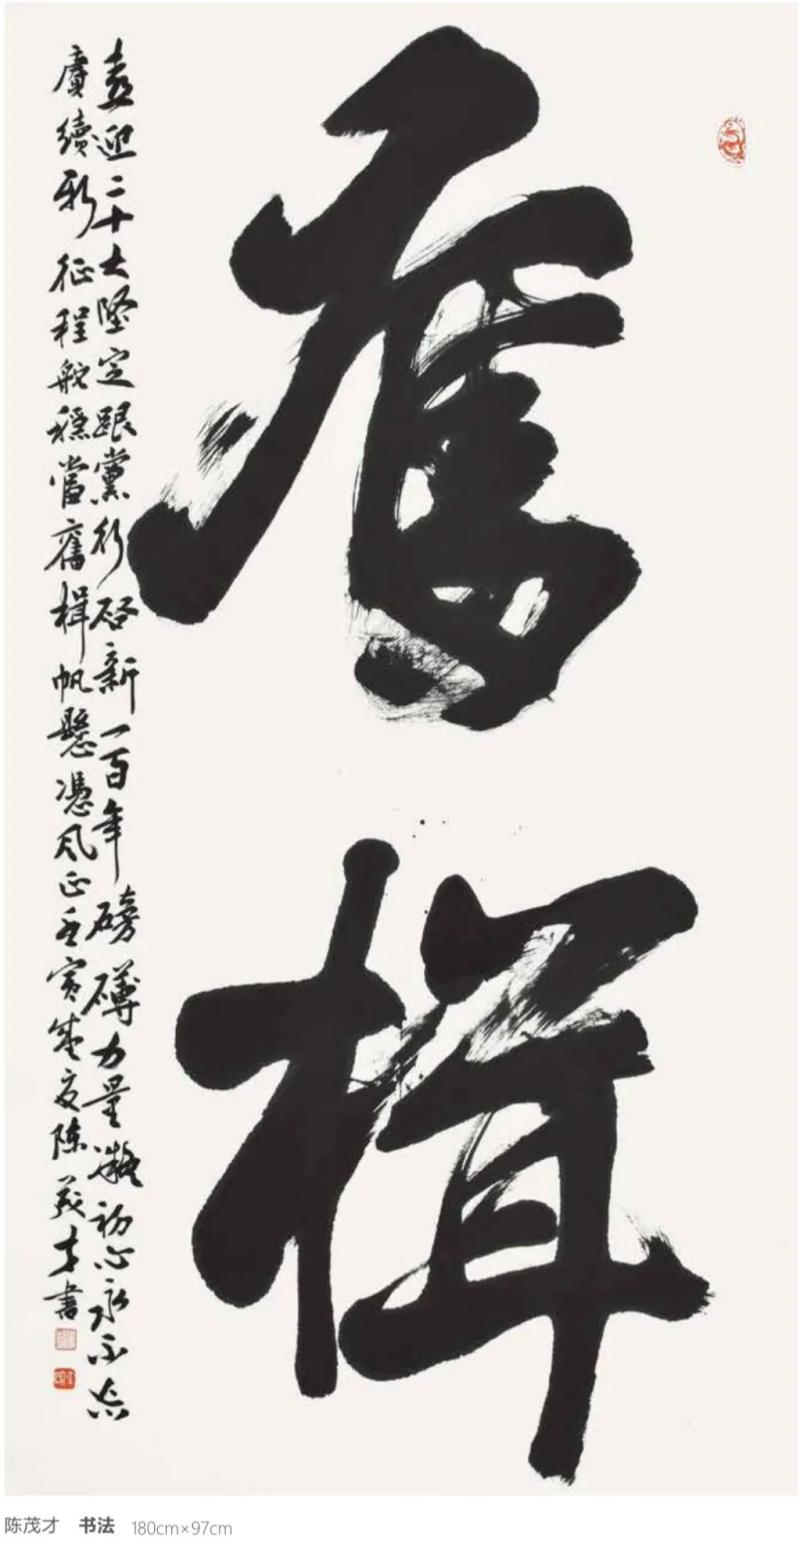 奮楫
喜迎二十大堅定跟黨行啓新一百年磅礴力量凝初心永不忘
賡續新征程舵穩當奮楫帆懸憑風正壬寅年夏陳茂才書
陈茂才 书法 180cm×97cm